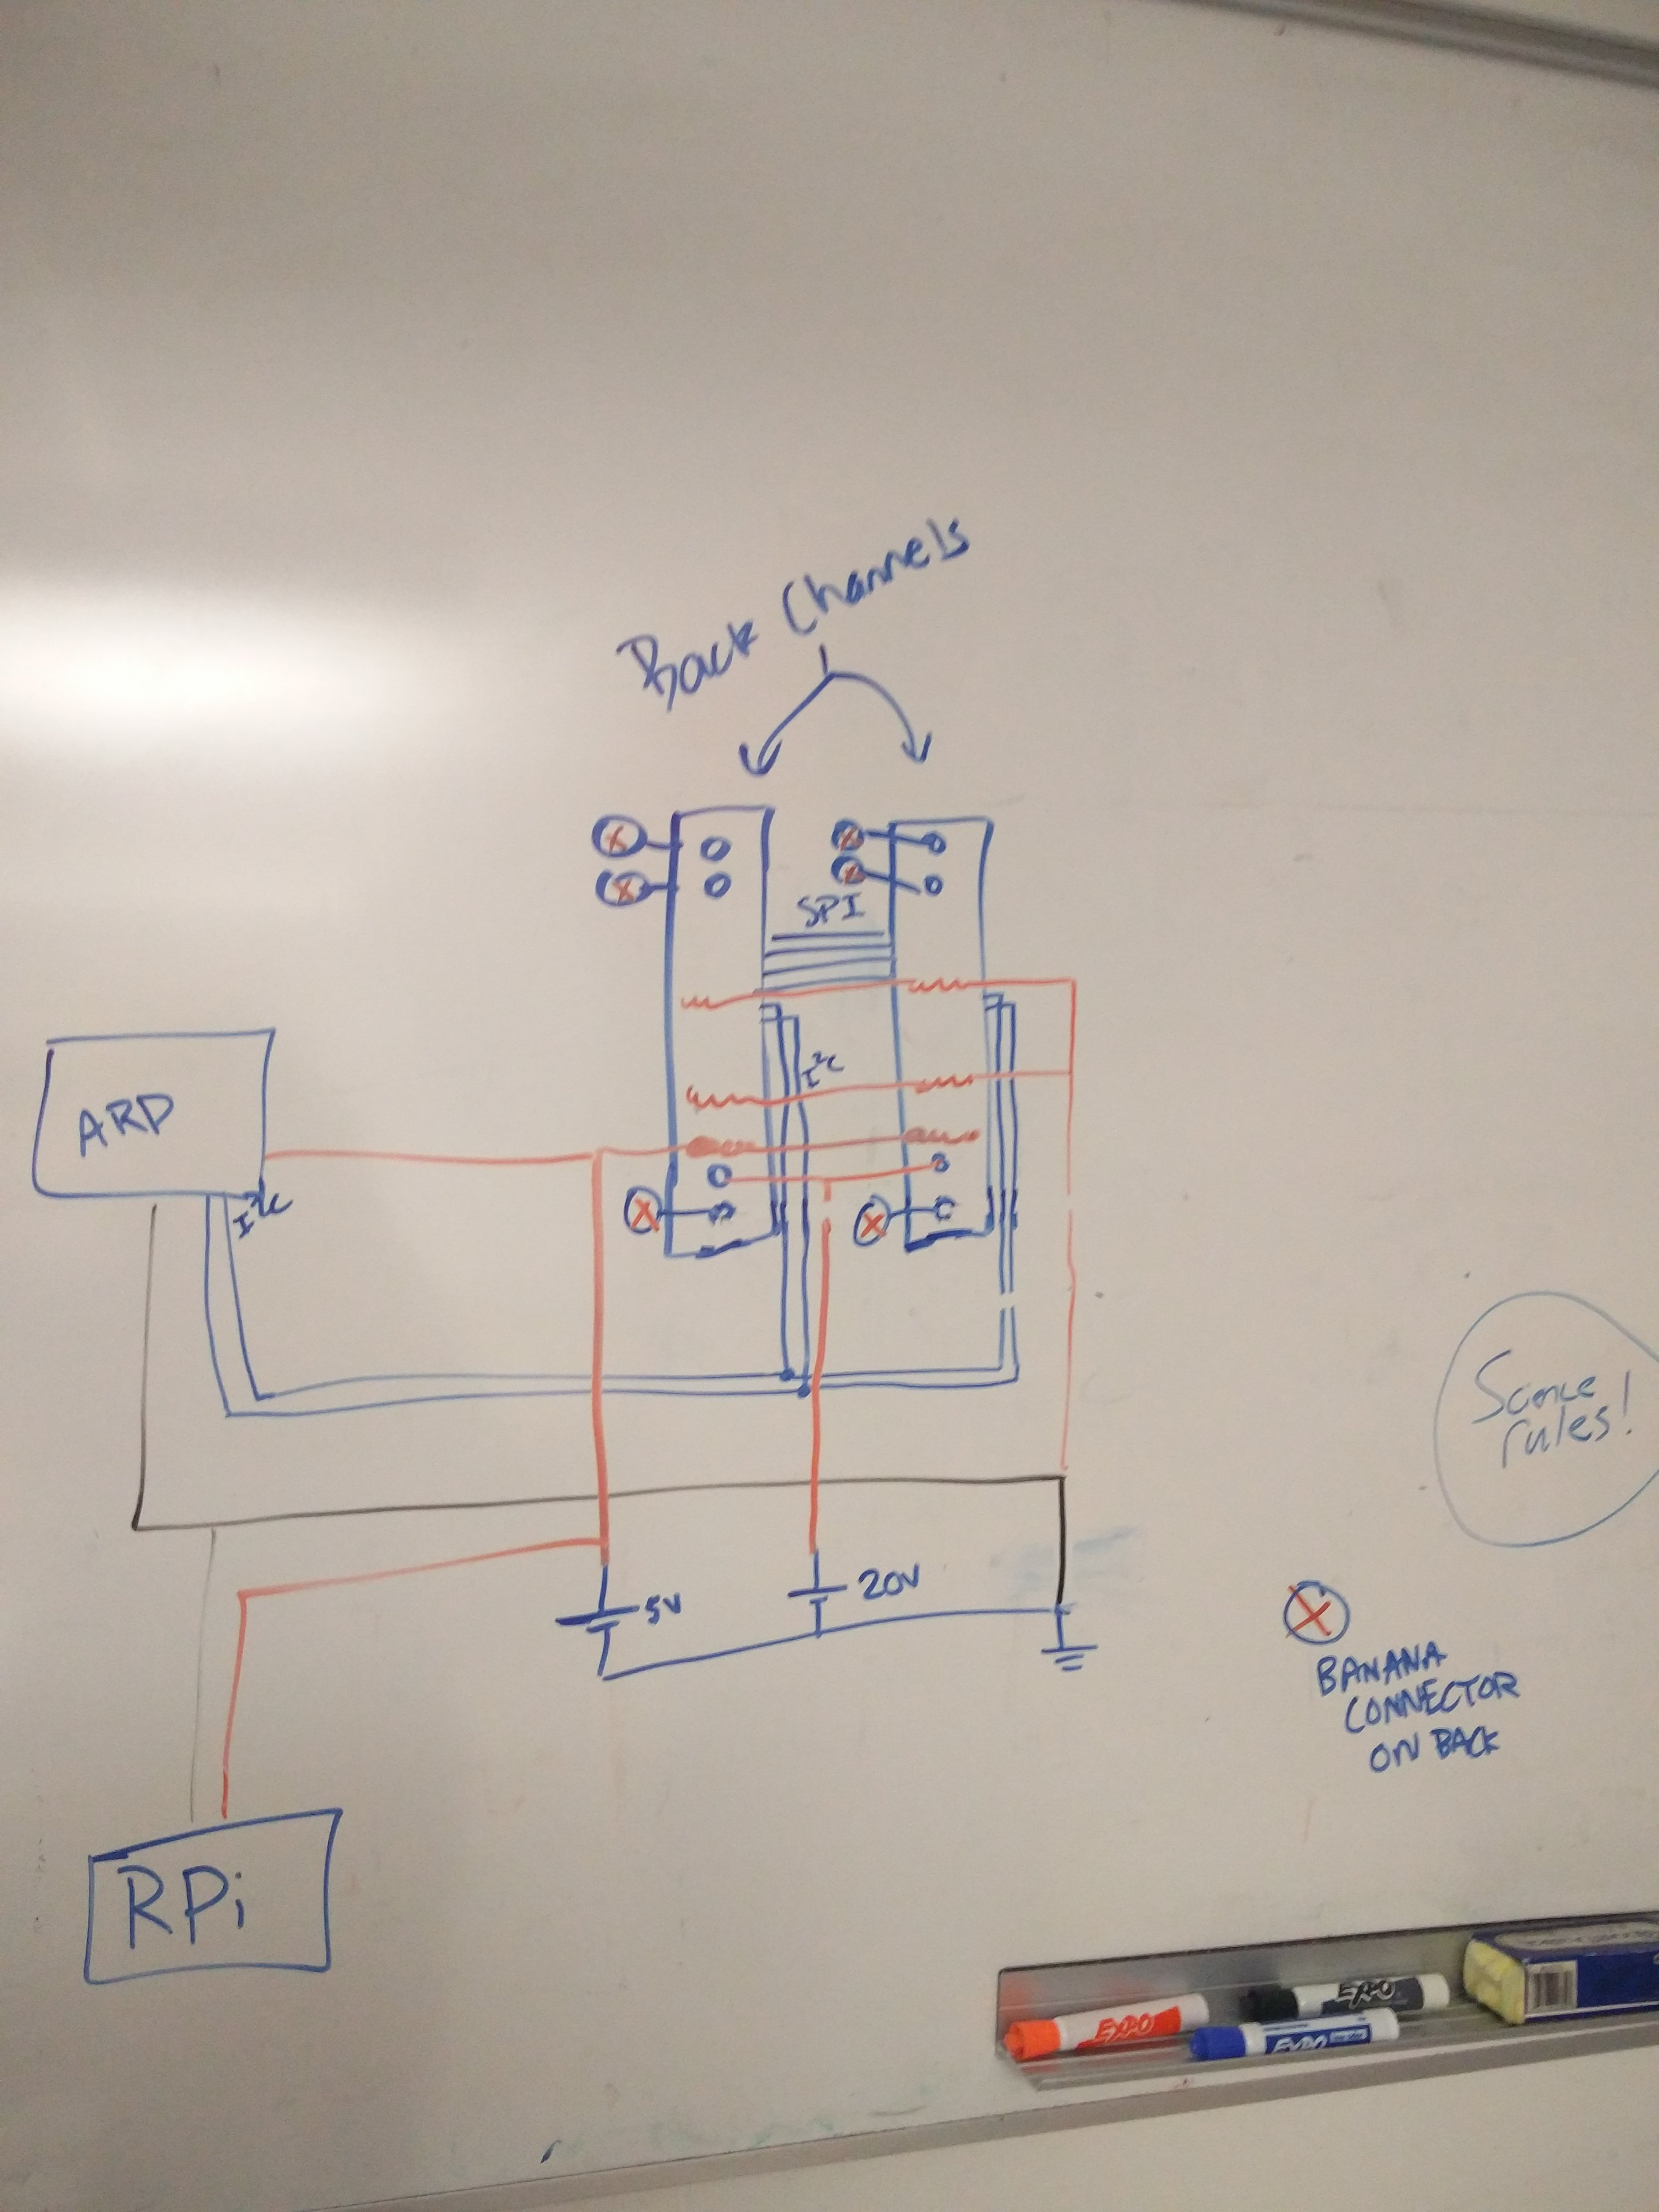 Back Channels
SPI
I²C
ARD
I²C
Science
rules!
5V
20V
BANANA
CONNECTOR
ON BACK
RPi
EXPO
EXPO
EXPO